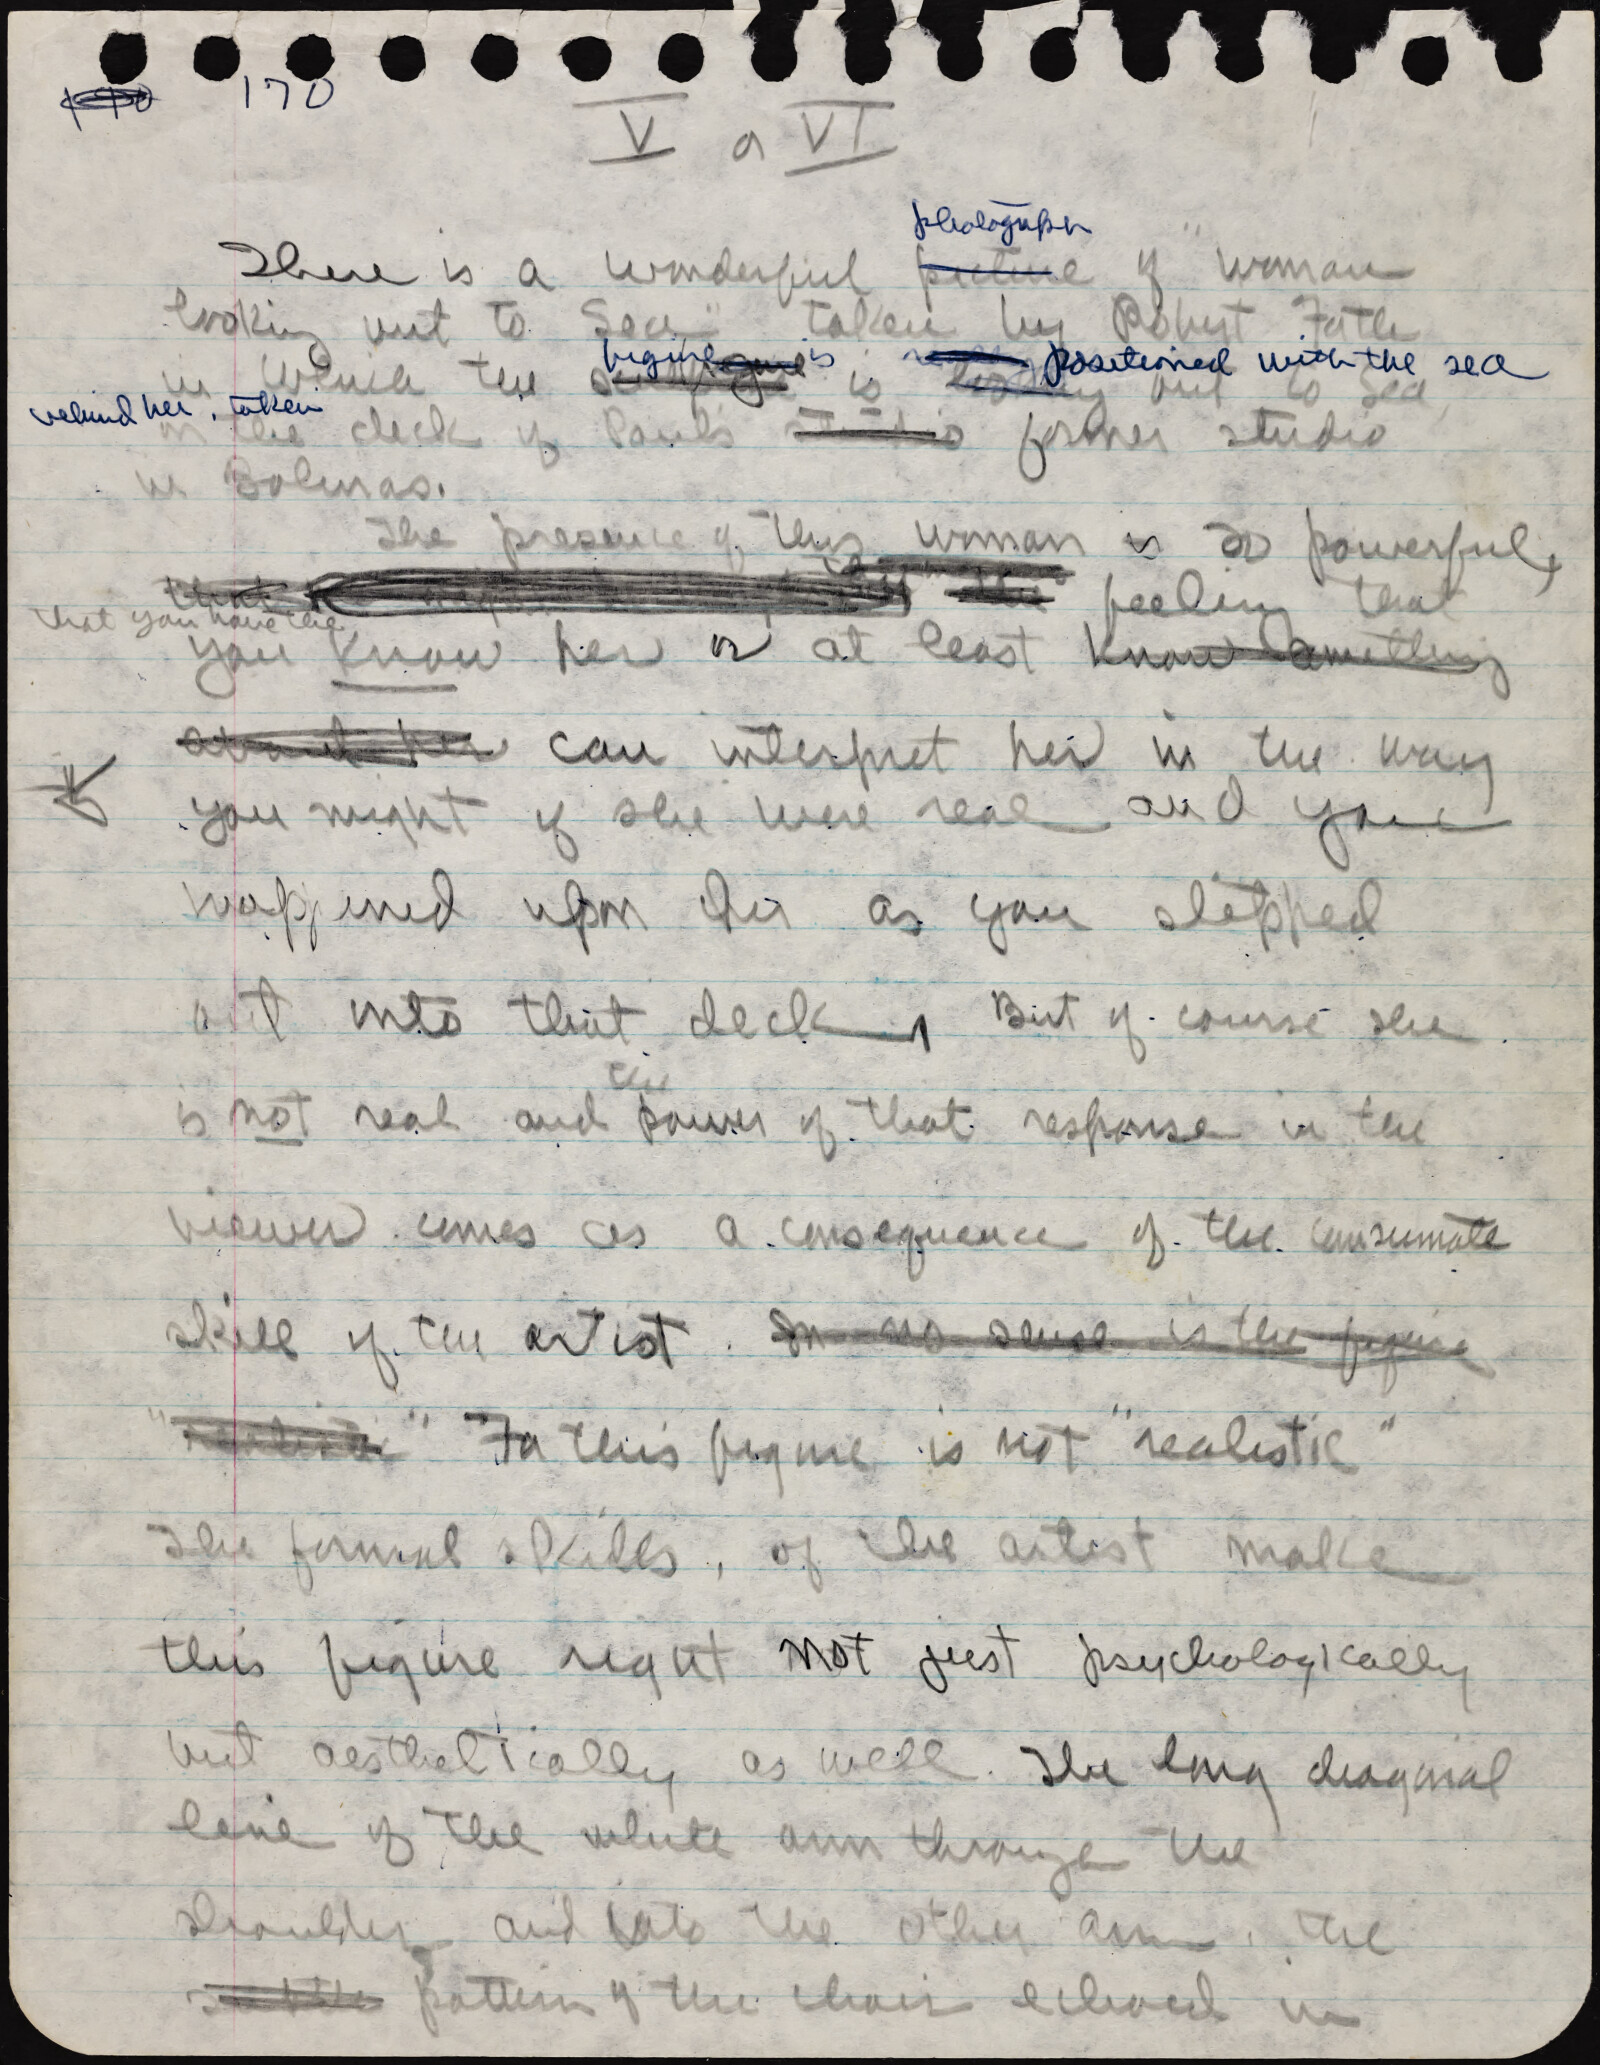 170
V or VI
photograph
There is a wonderful picture of "woman
looking out to Sea" taken by Robert
figure is positioned with the sea
in which the is looking out to Sea,
behind her, taken
on the deck of Paul's studio former studio
in Bolinas.
The presence of this woman is so powerful,
that feeling that
that you have the
you know her or at least know something
about her can interpret her in the way
you might if she were real and you
happened upon her as you stepped
out into that deck, But of course she
the
is not real and power of that response in the
viewer comes as a consequence of the consumate
skill of the artist. In no sense is the figure
"realistic" For this figure is not "realistic"
The formal skills, of the artist make
this figure right not just psychologically
but aesthetically as well. The long diagonal
line of the white arm through the
shoulder and into the other arm, the
pattern of the chair echoed in